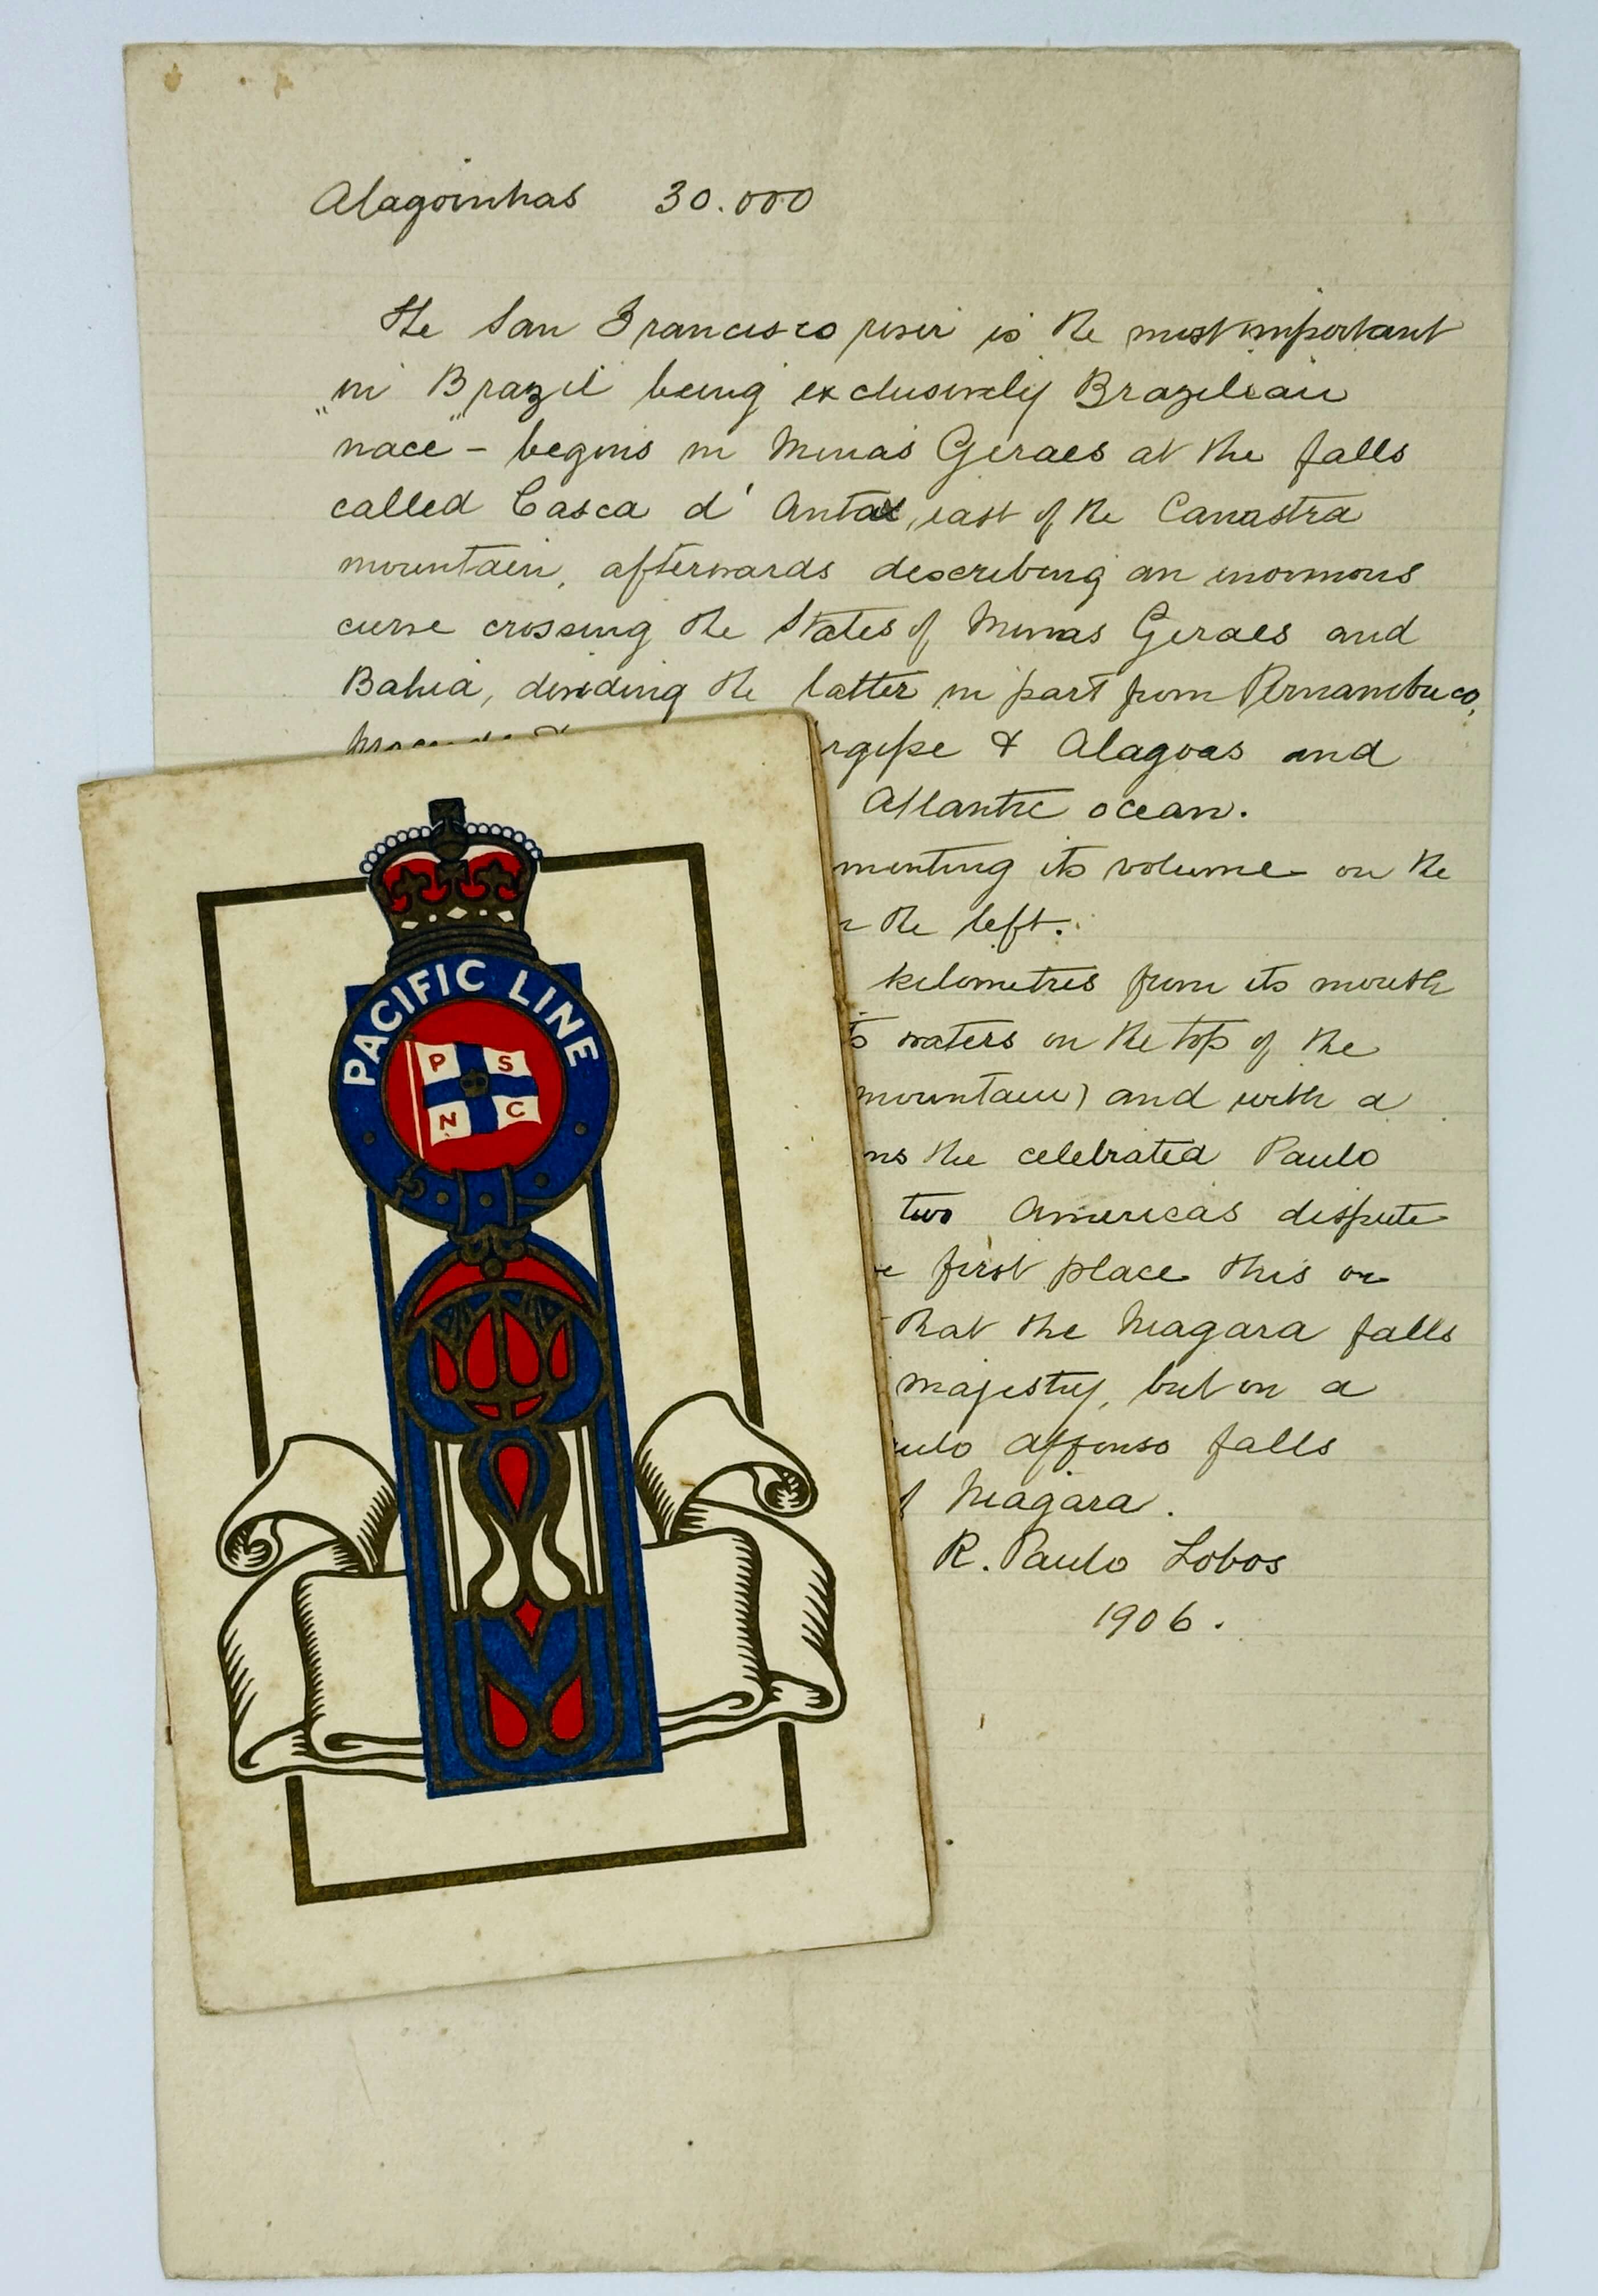 Alagoinhas 30.000
The San Francisco river is the most important
in Brazil being exclusively Brazilian
" "
nace - begins in Minas Geraes at the falls
called Casca d' Anta, east of the Canastra
mountain, afterwards describing an enormous
curve crossing the States of Minas Geraes and
Bahia, dividing the latter in part from Pernambuco,
rgipe & Alagoas and
Atlantic ocean.
menting its volume on the
the left.
kilometres from its mouth
waters on the top of the
mountain) and with a
ms the celebrated Paulo
two Americas dispute
first place this or
that the Niagara falls
majesty, but on a
ulo Affonso falls
Niagara.
R. Paulo Lobos
1906.
PACIFIC LINE
P S
N C